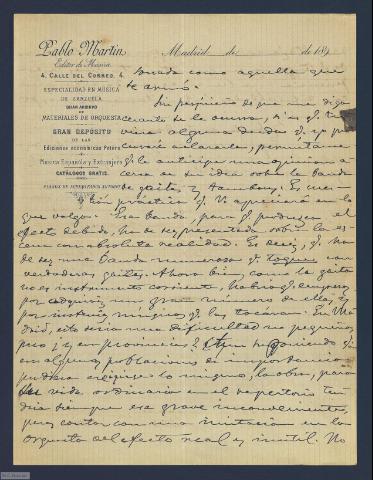 Pablo Martín
Editor de Música
4, CALLE DEL CORREO, 4.
ESPECIALIDAD EN MÚSICA
DE ZARZUELA
GRAN ARCHIVO
DE
MATERIALES DE ORQUESTA
GRAN DEPÓSITO
DE LAS
Ediciones económicas Peters
Música Española y Extranjera
CATÁLOGOS GRATIS.
Madrid de de 189
guada como aquella que
te animó.
Sin perjuicio de que me diga
cuanto se le ocurra, si en q. tu
viera alguna duda q. yo pu
diera aclararle, permítame
q. le anticipe una opinion a
cerca de su idea sobre la banda
de gaitas, y tambores. Es mi
práctica y V. apreciará en lo
que valga. Esa banda, para q. produzca el
efecto debido, ha de ser presentada sobre la es
cena con absoluta realidad. Es decir, q. ha
de ser una banda numerosa q. toquen con
verdaderas gaitas. Ahora bien, como la gaita
no es instrumento corriente, habría q. empezar
por adquirir un gran número de ellas, y
por instruir mingos q. las tocaran. En Ma
drid, esto sería una dificultad no pequeña,
pero ¿y en provincias? Aun suponiendo q.
en algunas poblaciones de importancia
pudiera exigirse lo mismo, la obra, para
su vida ordinaria en el repertorio ten
dría siempre ese grave inconveniente,
pues contar con una imitacion en la
orquesta del efecto real es inutil. No